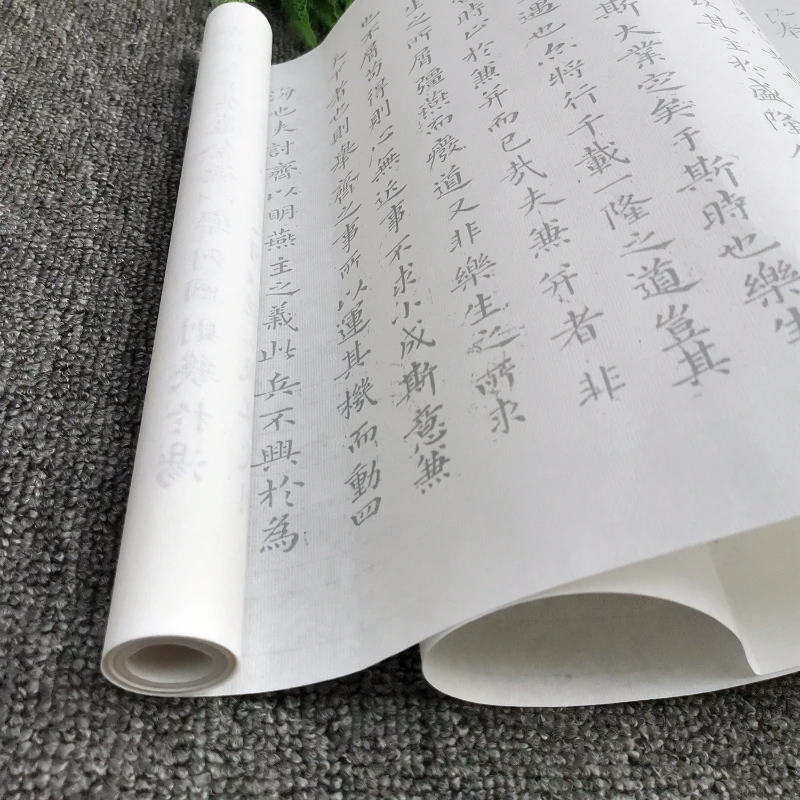 其主於盛隆
斯大業定矣于斯時也樂生
遇也亦將行千載一隆之道豈其
時止於兼并而已哉夫兼并者非
生之所屑彊燕而廢道又非樂生之所求
也不屑苟得則心無近事不求小成斯意兼
天下者也則舉齊之事所以運其機而動四
海也夫討齊以明燕主之義此兵不興於為
國則幾於湯